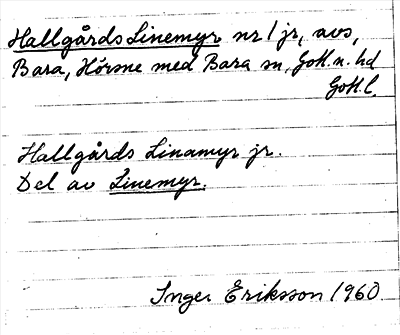 Hallgårds Linemyr nr 1 jr, avs,
Bara, Hörsne med Bara sn, Gotl. n. hd
Gotl.
Hallgårds Linamyr jr.
Del av Linemyr.
Inger Eriksson 1960